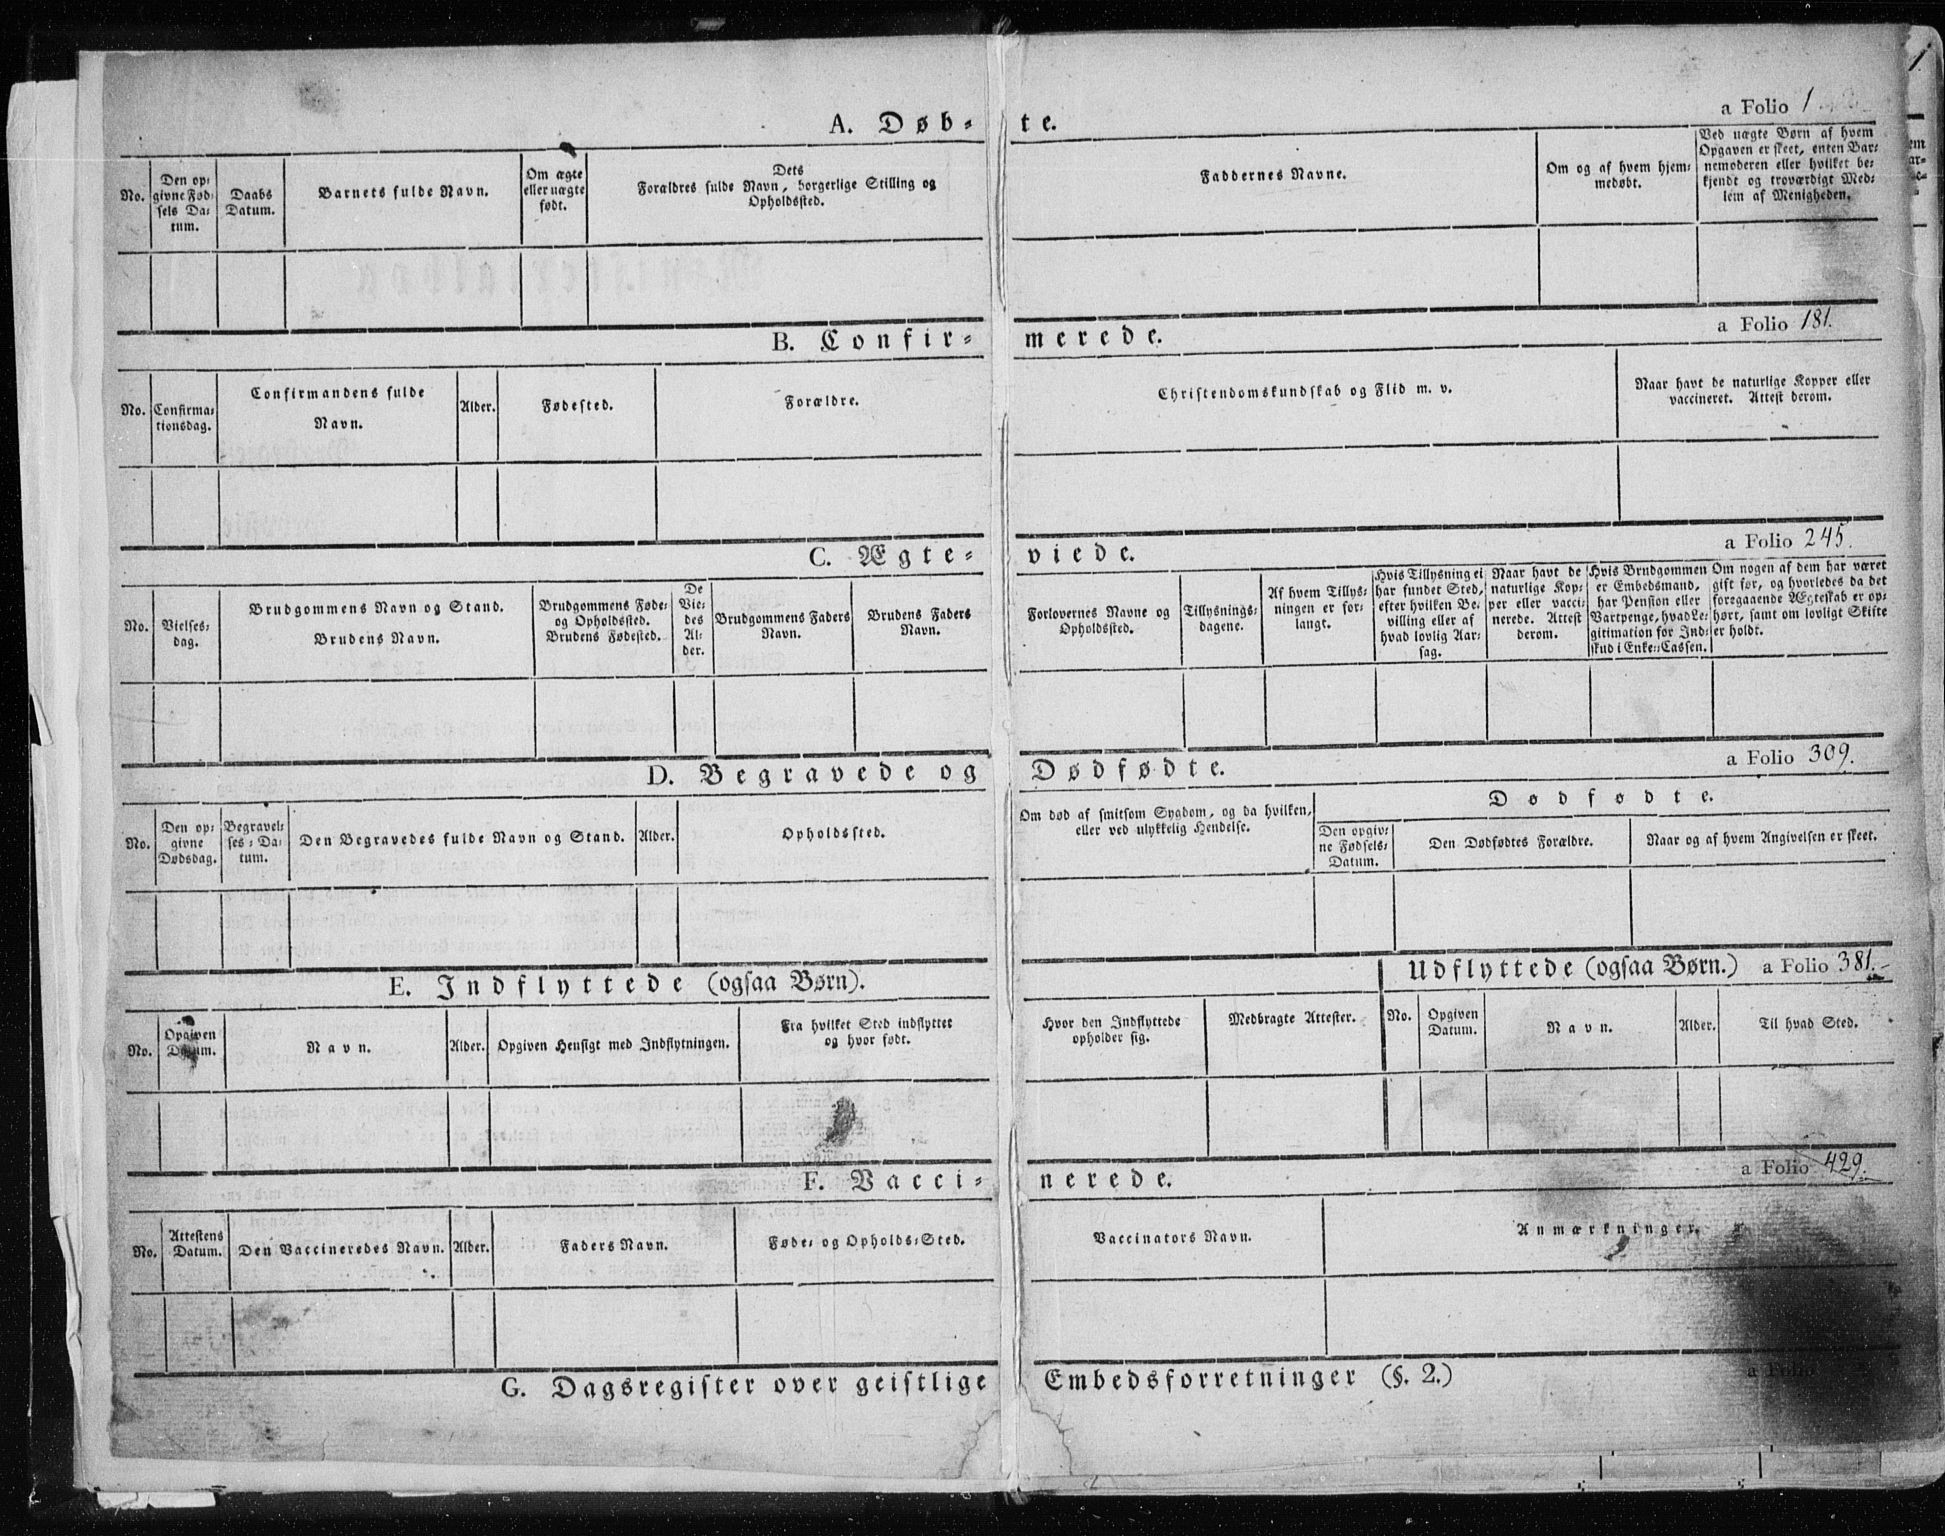 1
a Folio 1
A. Døb- te.
No.
Den op-
givne Fød-
sels Da-
tum.
Daabs
Datum.
Barnets fulde Navn.
Om ægte
eller uægte
født.
Dets
Forældres fulde Navn, borgerlige Stilling og
Opholdssted.
Faddernes Navne.
Om og af hvem hjem-
medøbt.
Ved uægte Børn af hvem
Opgaven er skeet, enten Bar-
nemoderen eller hvilket be-
kjendt og troværdigt Med-
lem af Menigheden.
a Folio 181.
B. Confir- merede.
No.
Confirma-
tionsdag.
Confirmandens fulde
Navn.
Alder.
Fødested.
Forældre.
Christendomskundskab og Flid m. v.
Naar havt de naturlige Kopper eller
vaccineret. Attest derom.
a Folio 245.
C. Ægte- viede.
No.
Vielses-
dag.
Brudgommens Navn og Stand.
Brudens Navn.
Brudgommens Føde-
og Opholdssted.
Brudens Fødested.
De
Vie-
des
Al-
der.
Brudgommens Faders
Navn.
Brudens Faders
Navn.
Forlovernes Navne og
Opholdssted.
Tillysnings-
dagene.
Af hvem Tillys-
ningen er for-
langt.
Hvis Tillysning ei
har fundet Sted,
efter hvilken Be-
villing eller af
hvad lovlig Aar-
sag.
Naar havt de
naturlige Kop-
per eller vacci-
nerede. Attest
derom.
Hvis Brudgommen
er Embedsmand,
har Pension eller
Vartpenge, hvad Le-
gitimation for Ind-
skud i Enke-Cassen.
Om nogen af dem har været
gift før, og hvorledes da det
foregaaende Ægteskab er op-
hørt, samt om lovligt Skifte
er holdt.
a Folio 309.
D. Begravede og Dødfødte.
No.
Den op-
givne
Dødsdag.
Begravel-
ses-Da-
tum.
Den Begravedes fulde Navn og Stand.
Alder.
Opholdssted.
Om død af smitsom Sygdom, og da hvilken,
eller ved ulykkelig Hendelse.
Dødfødte.
Den opgiv-
ne Fødsels-
Datum.
Den Dødfødtes Forældre.
Naar og af hvem Angivelsen er skeet.
E. Indflyttede (ogsaa Børn).
Udflyttede (ogsaa Børn.) a Folio 381.
No.
Opgiven
Datum.
Navn.
Alder.
Opgiven Hensigt med Indflytningen.
Fra hvilket Sted indflyttet
og hvor født.
Hvor den Indflyttede
opholder sig.
Medbragte Attester.
No.
Opgiven
Datum.
Navn.
Alder.
Til hvad Sted.
a Folio 429.
F. Vacci- nerede.
No.
Attestens
Datum.
Den Vaccineredes Navn.
Alder.
Faders Navn.
Føde- og Opholds-Sted.
Vaccinators Navn.
Anmærkninger.
G. Dagsregister over geistlige Embedsforretninger (§. 2.)
a Folio